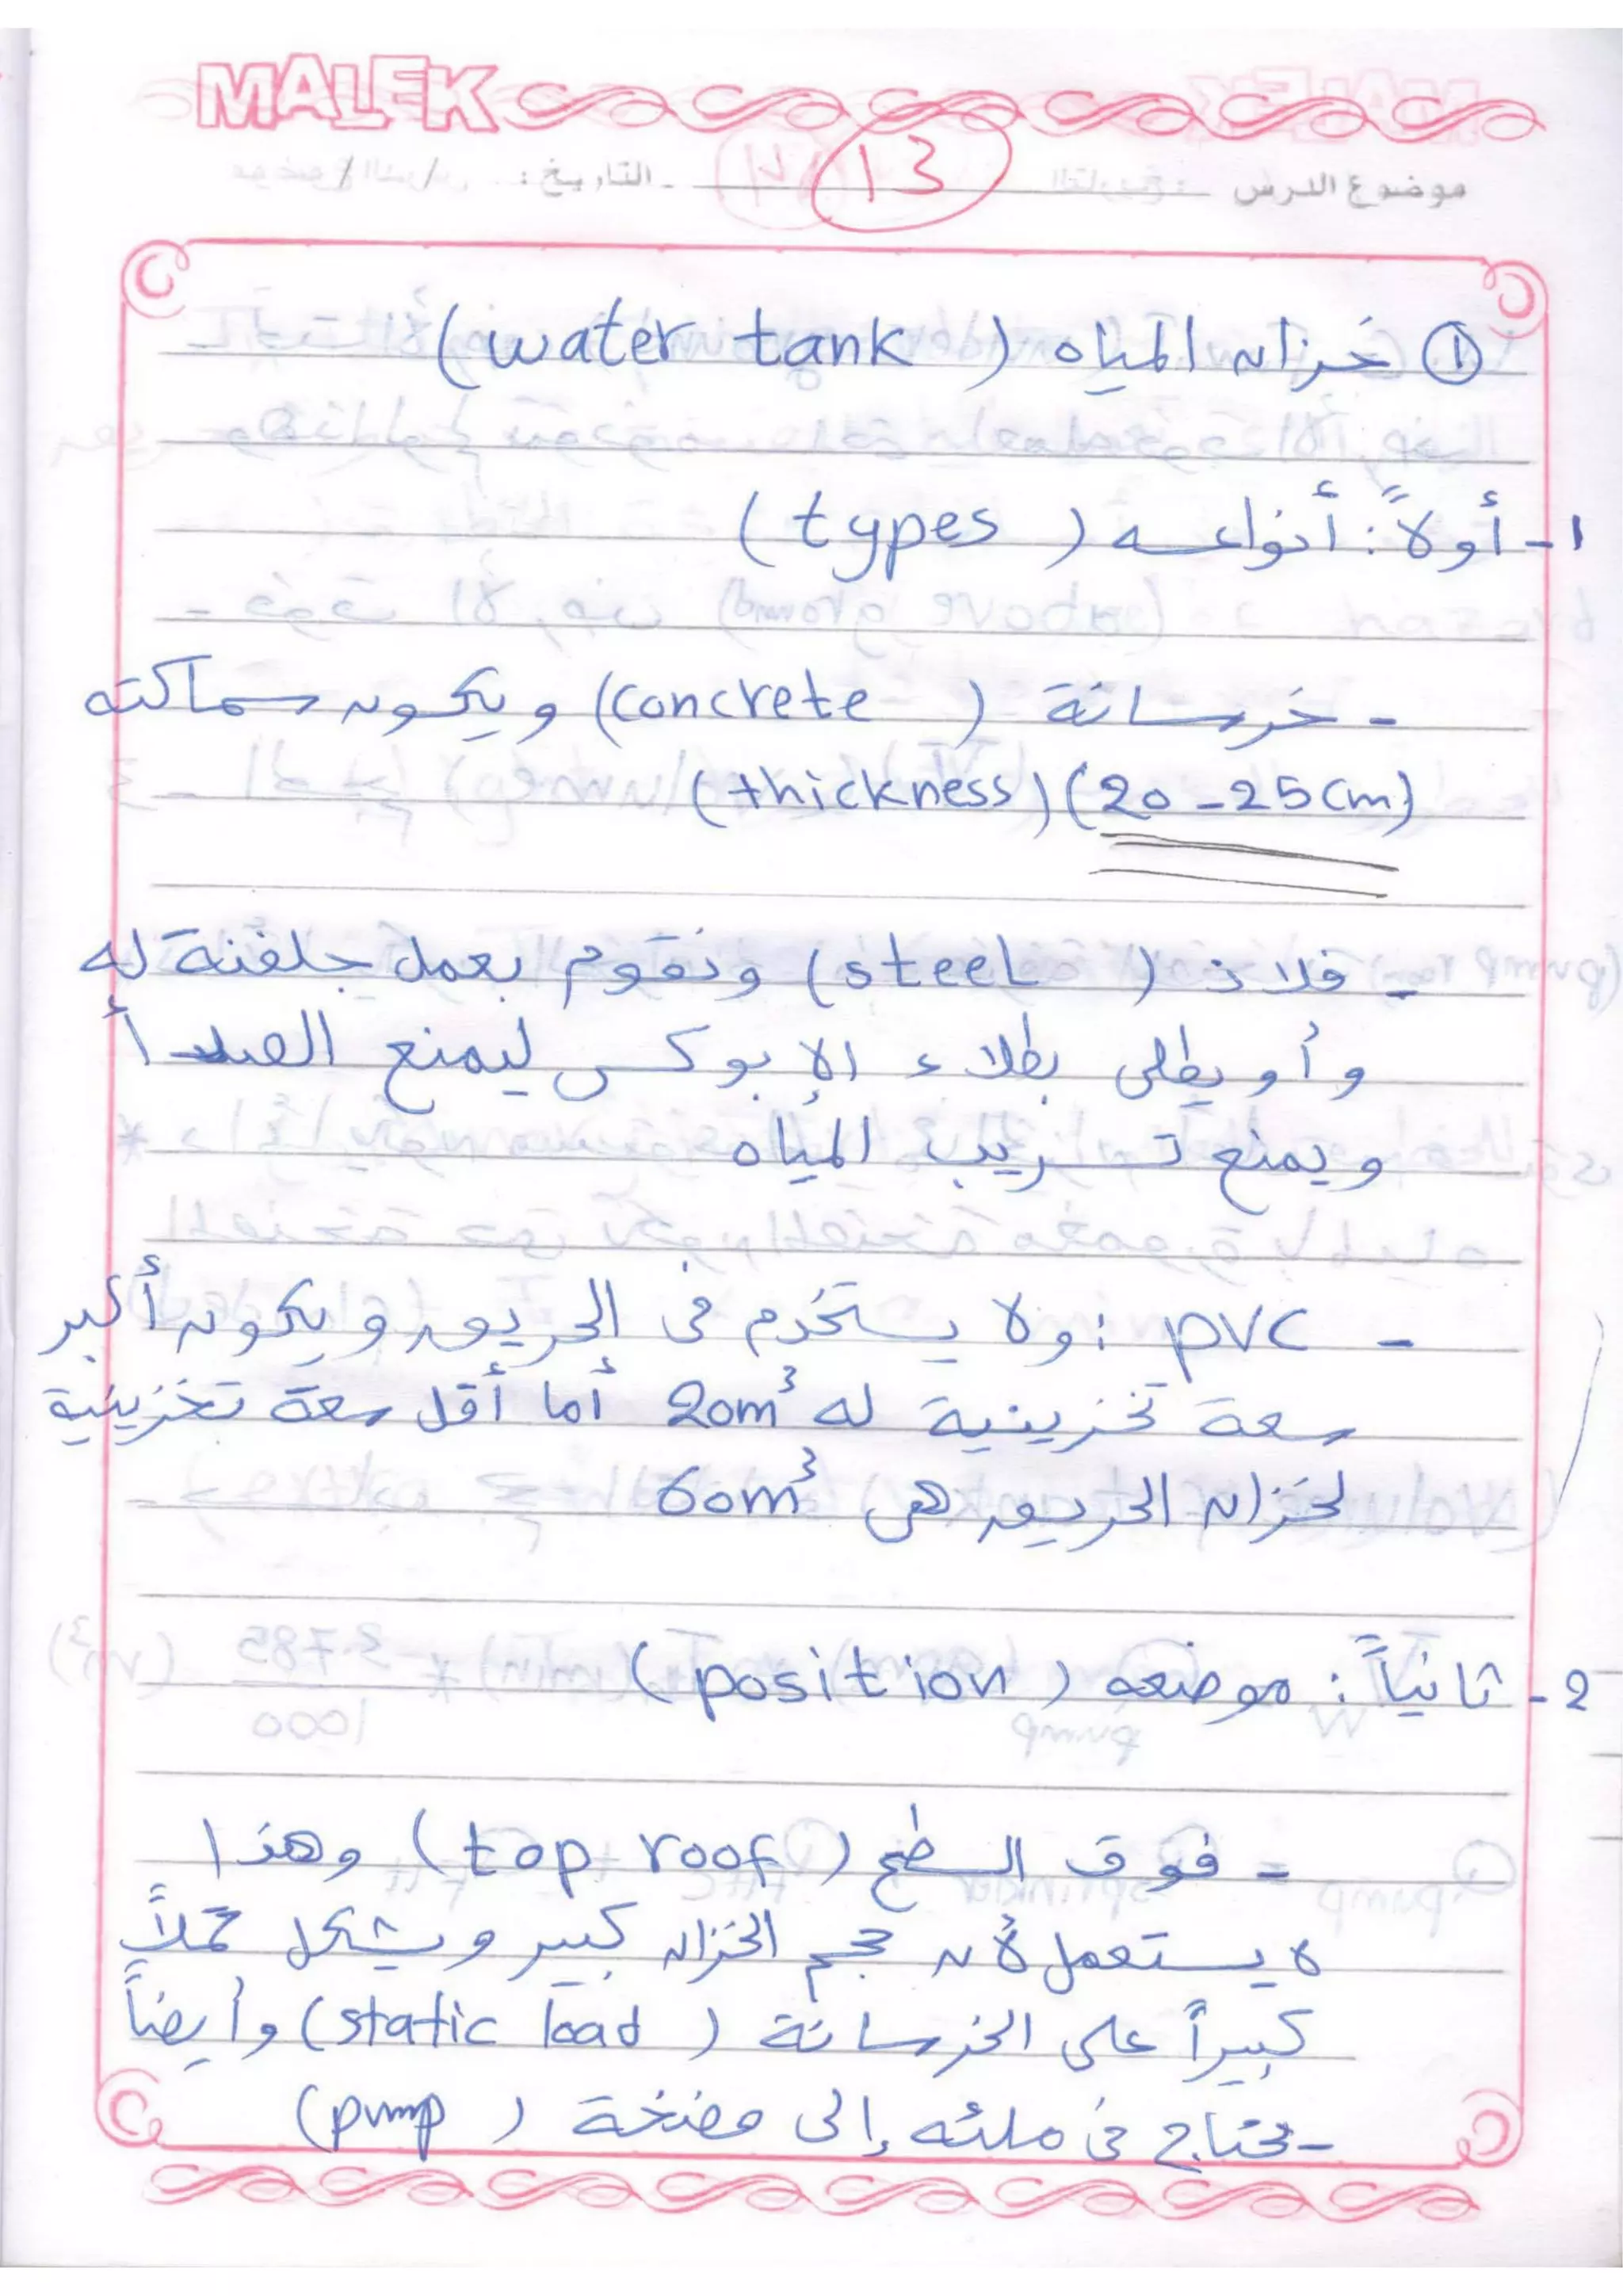 MALEK
موضوع الدرس : التاريخ : / /
13
① خزان المياه (water tank)
1- أولاً : أنواعه (types)
- خرسانة (concrete) ويكون سماكته
(thickness) (20 - 25cm)
- فلاذ (steel) ونقوم بعمل جلفنة له
وأو يطلى بطلاء الإبوكس ليمنع الصدأ
ويمنع تسريب المياه
- pvc : ولا يستخدم فى الحريق ويكون أكبر
سعة تخزينية له 20m³ أما أقل سعة تخزينية
لخزان الحريق هى 60m³
2- ثانياً : موضعه (position)
- فوق السطح (top roof) وهذا
لا يستعمل لأن حجم الخزان كبير ويشكل حملاً
كبيراً على الخرسانة (static load) وأيضاً
- يحتاج فى ملئه إلى مضخة (pump)